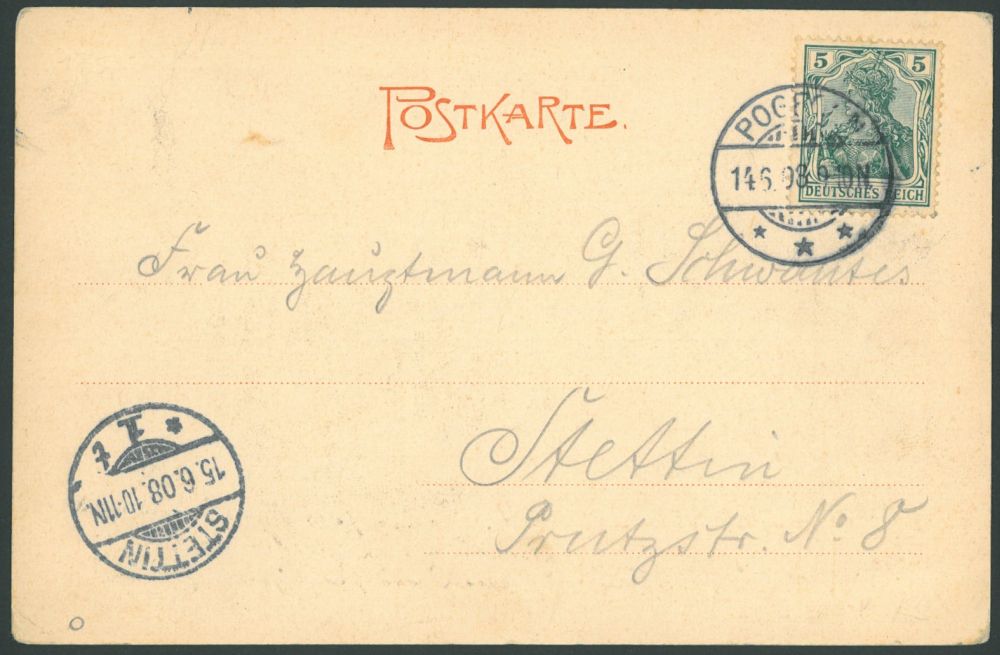 POSTKARTE.
5 5
DEUTSCHES REICH
14.6.08. 9-10N.
Frau Hauptmann G. Schwantes
Stettin
Prutzstr. No. 8
STETTIN
15.6.08.10-11N.
1